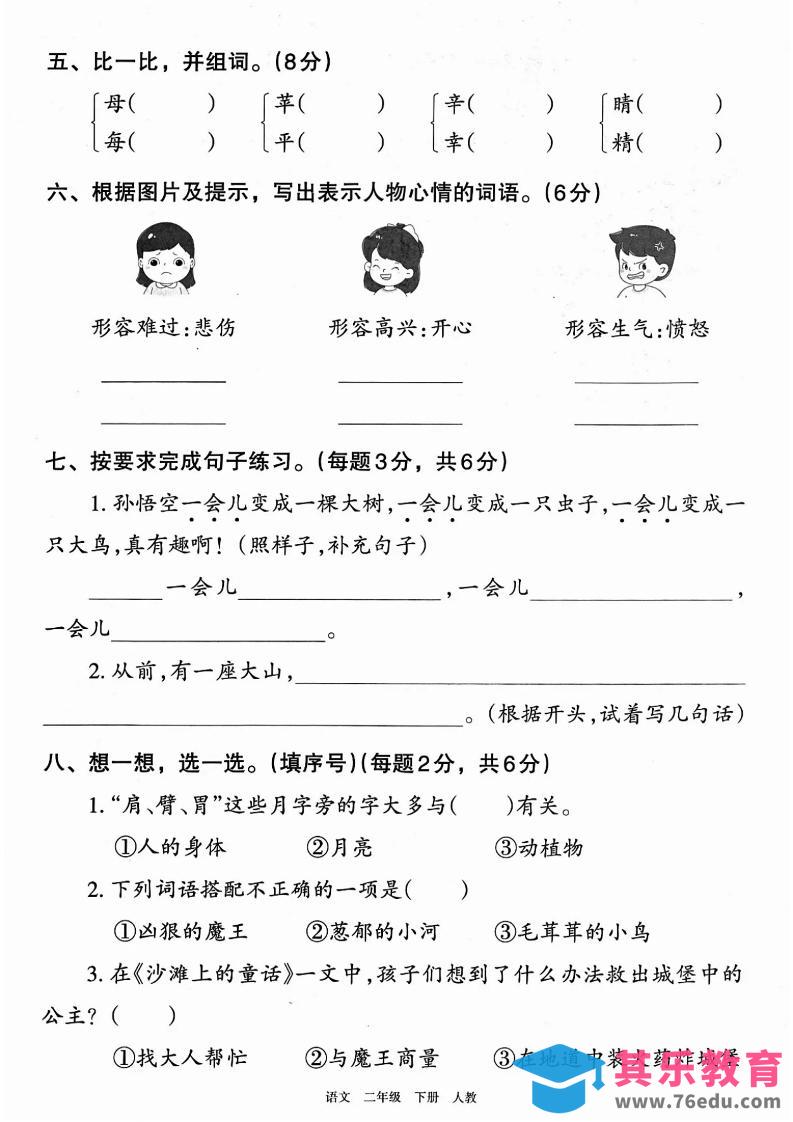 五、比一比，并组词。（8分）
母(　　) 苹(　　) 辛(　　) 晴(　　)
每(　　) 平(　　) 幸(　　) 精(　　)
六、根据图片及提示，写出表示人物心情的词语。（6分）
形容难过：悲伤 形容高兴：开心 形容生气：愤怒
七、按要求完成句子练习。（每题3分，共6分）
1. 孙悟空一会儿变成一棵大树，一会儿变成一只虫子，一会儿变成一
只大鸟，真有趣啊！（照样子，补充句子）
______一会儿________________，一会儿________________，
一会儿________________。
2. 从前，有一座大山，________________________________
________________________________。（根据开头，试着写几句话）
八、想一想，选一选。（填序号）（每题2分，共6分）
1. “肩、臂、胃”这些月字旁的字大多与(　　)有关。
①人的身体 ②月亮 ③动植物
2. 下列词语搭配不正确的一项是(　　)
①凶狠的魔王 ②葱郁的小河 ③毛茸茸的小鸟
3. 在《沙滩上的童话》一文中，孩子们想到了什么办法救出城堡中的
公主？(　　)
①找大人帮忙 ②与魔王商量 ③在地道中装火药炸城堡
语文 二年级 下册 人教
其乐教育
www.76edu.com